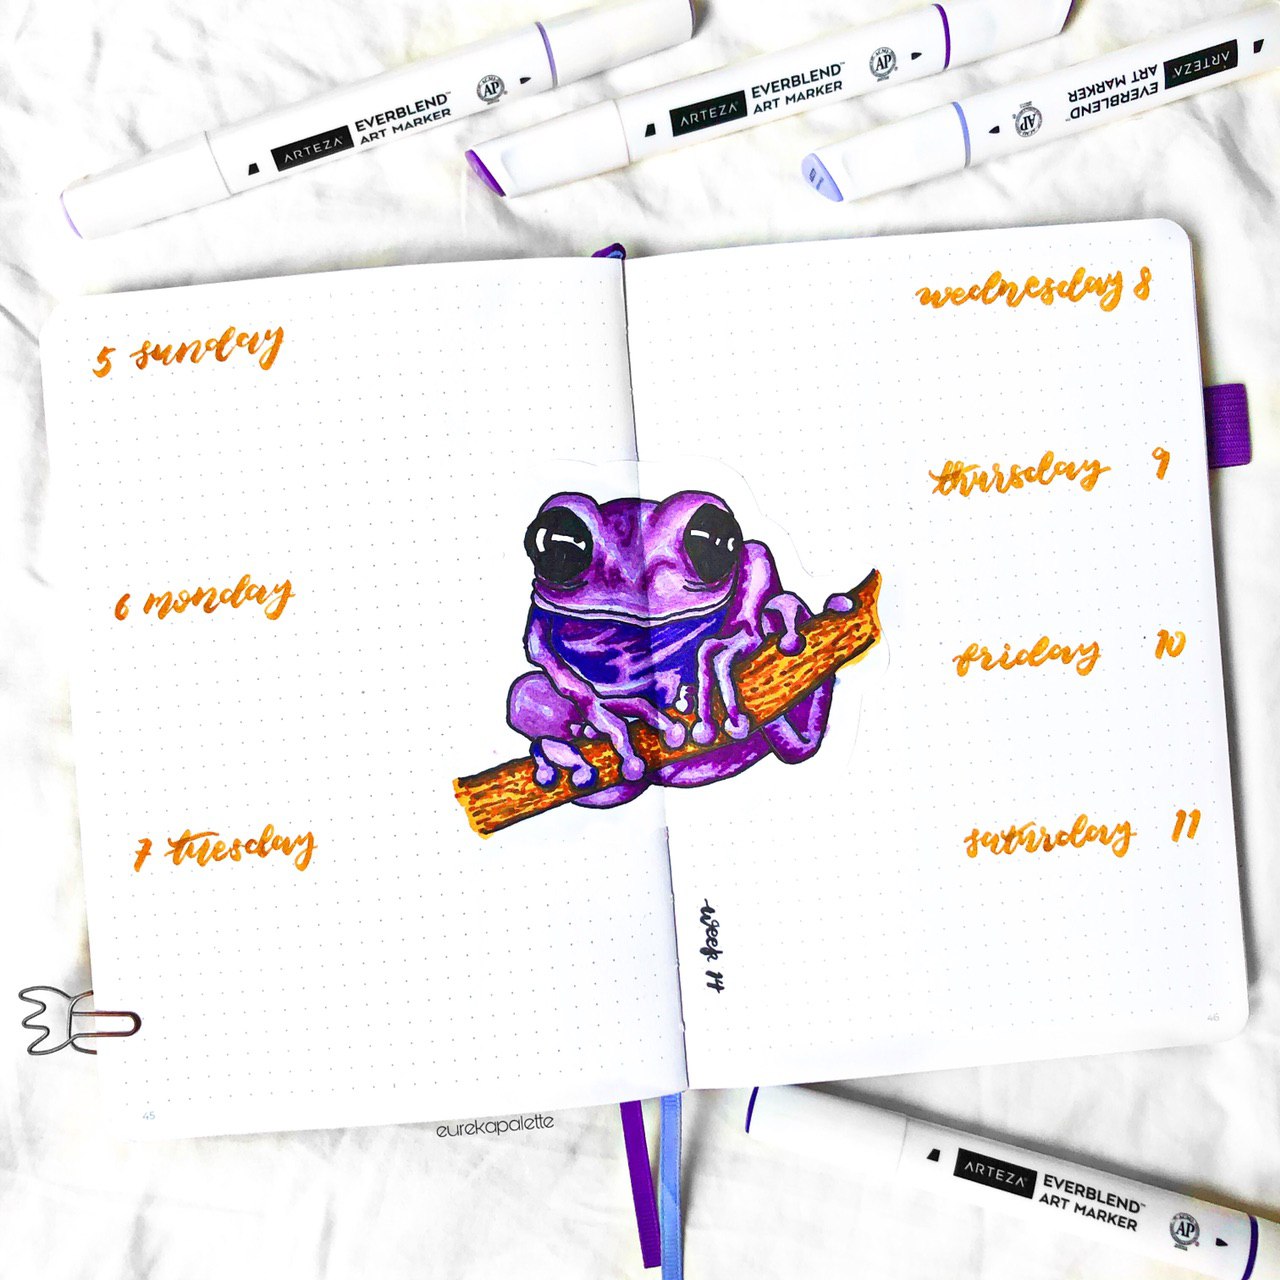 ARTEZA
EVERBLEND™
ART MARKER
AP
ARTEZA
EVERBLEND™
ART MARKER
AP
ARTEZA
EVERBLEND™
ART MARKER
AP
5 sunday
6 monday
7 tuesday
45
wednesday 8
thursday 9
friday 10
saturday 11
week 14
46
eurekapalette
ARTEZA
EVERBLEND™
ART MARKER
AP